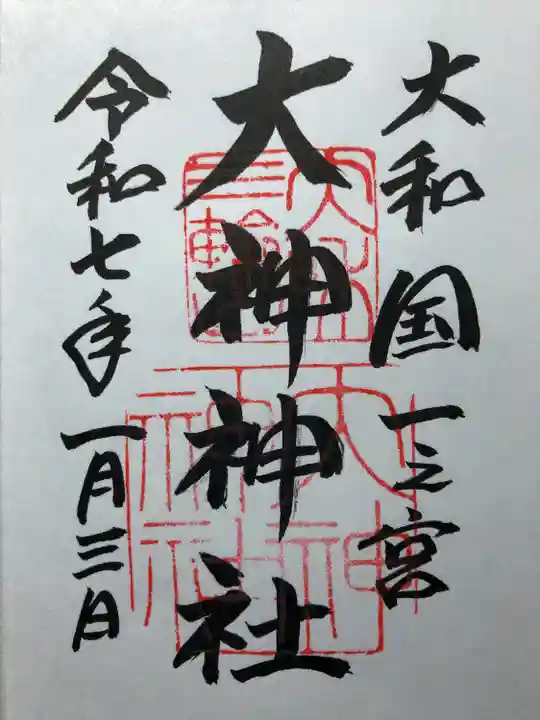 大和国一之宮
大神神社
令和七年一月三日
大神神社